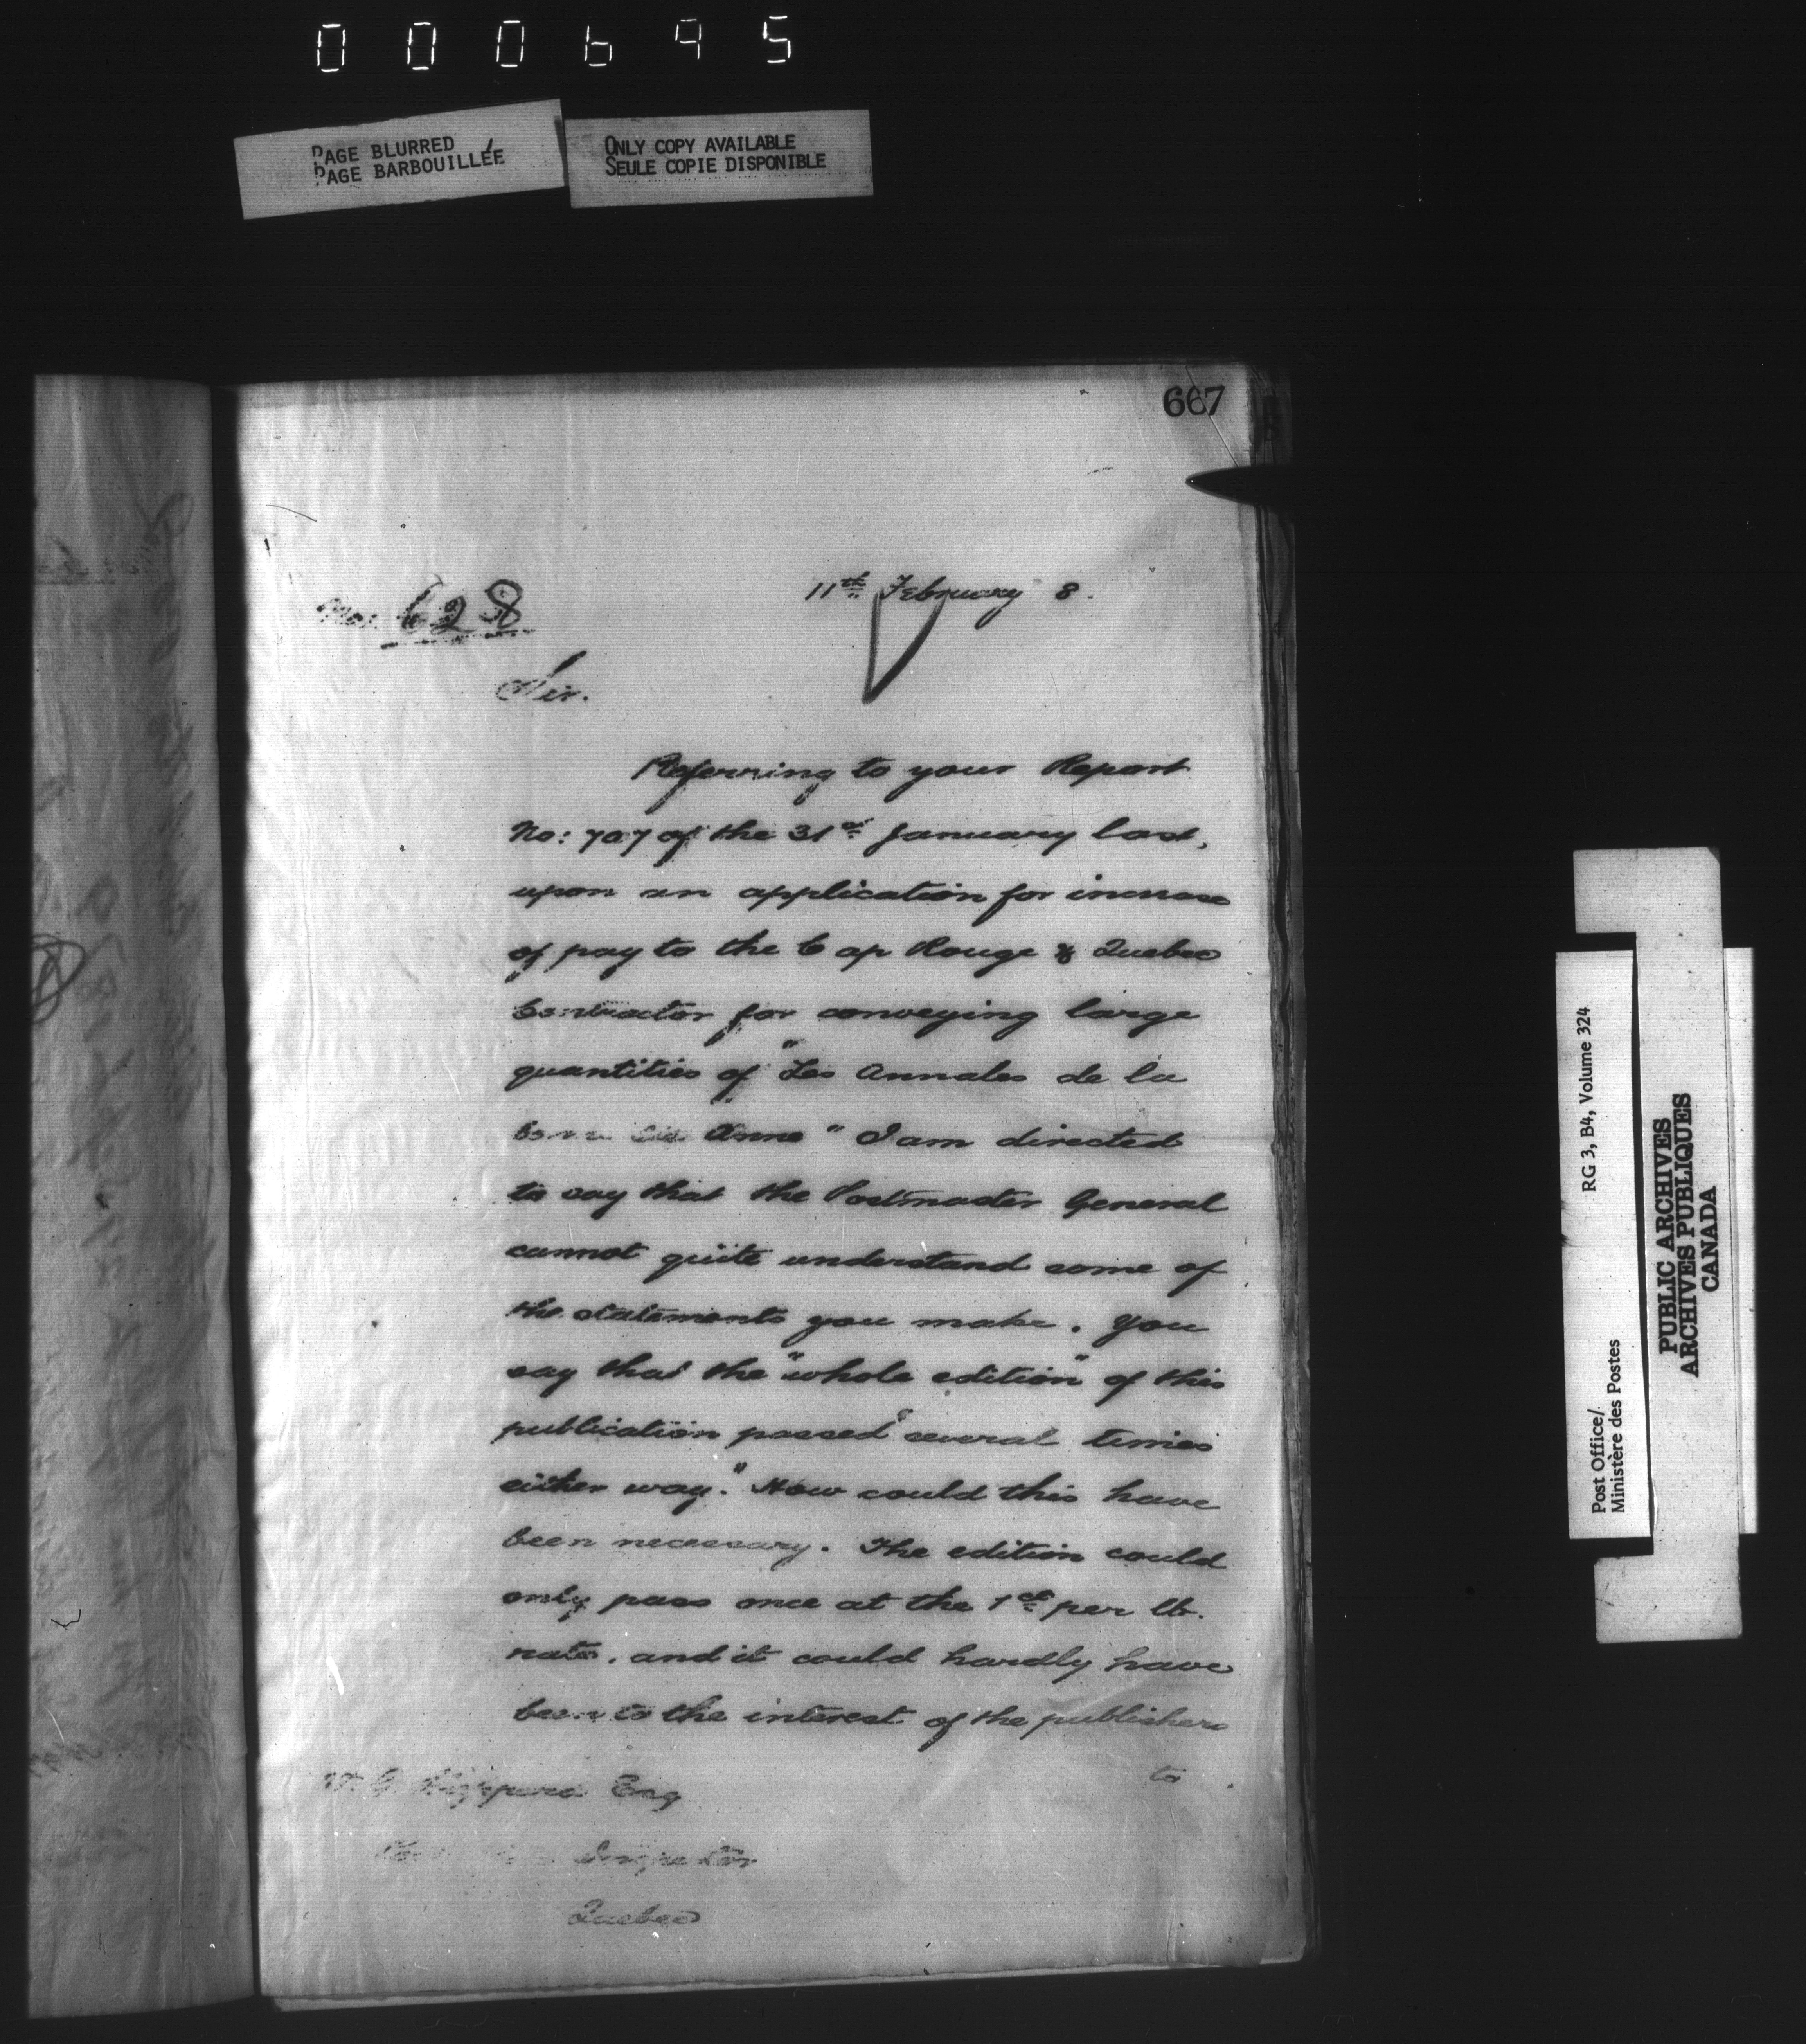 000695
PAGE BLURRED
PAGE BARBOUILLÉE
ONLY COPY AVAILABLE
SEULE COPIE DISPONIBLE
667
11th February 8.
No. 628
Sir.
Referring to your Report
No: 707 of the 31st January last,
upon an application for increase
of pay to the Cap Rouge & Quebec
Contractor for conveying large
quantities of "Les Annales de la
Anne" I am directed
to say that the Postmaster General
cannot quite understand some of
the statements you make. You
say that the "whole edition" of this
publication passed "several times
either way." How could this have
been necessary. The edition could
only pass once at the 1ct per lb.
rate, and it could hardly have
been to the interest of the publishers
to
Esq
Inspector
Quebec
Post Office/
Ministère des Postes
RG 3, B4, Volume 324
PUBLIC ARCHIVES
ARCHIVES PUBLIQUES
CANADA